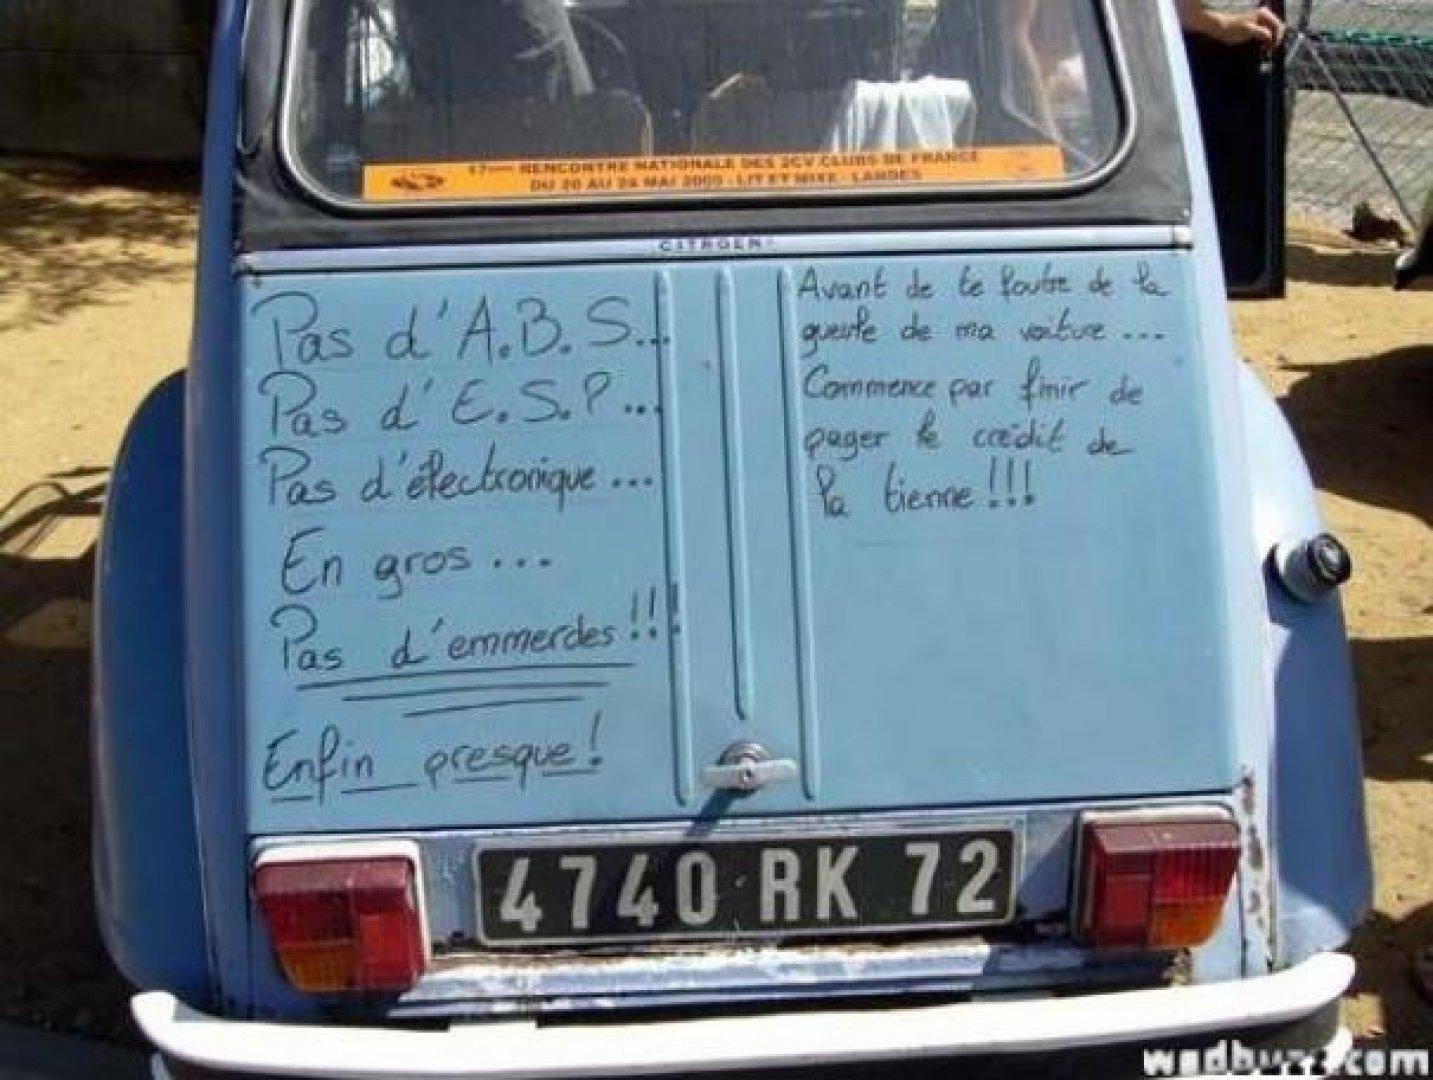 17ème RENCONTRE NATIONALE DES 2CV CLUBS DE FRANCE
DU 20 AU 24 MAI 2005 - LIT ET MIXE - LANDES
CITROEN
Pas d'A.B.S...
Pas d'E.S.P...
Pas d'électronique...
En gros...
Pas d'emmerdes!!!
Enfin presque!
Avant de te foutre de la
gueule de ma voiture...
Commence par finir de
payer le crédit de
la tienne!!!
4740 RK 72
wedbuzz.com